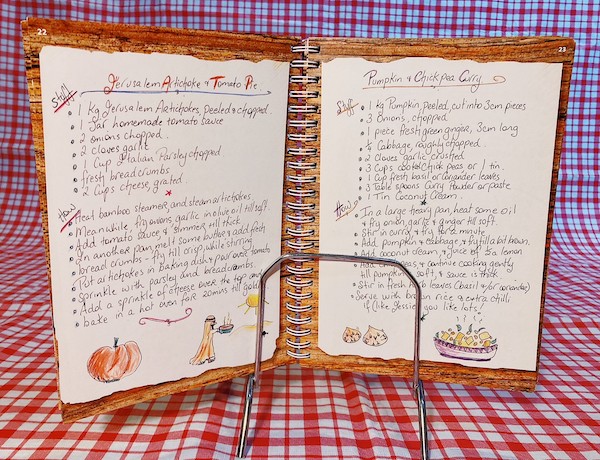 22
Jerusalem Artichoke & Tomato Pie.
Stuff
1 Kg Jerusalem Artichokes, peeled & chopped.
1 Jar homemade tomato sauce
2 onions chopped.
2 cloves garlic
1 Cup Italian Parsley chopped.
fresh bread crumbs.
2 cups cheese, grated.
How
Heat bamboo steamer, and steam artichokes.
Meanwhile fry onions, garlic in olive oil till soft.
Add tomato sauce & simmer till thick.
In another pan, melt some butter & add fresh
bread crumbs - fry till crisp, while stirring
Put artichokes in baking dish & pour over tomato
Sprinkle with parsley and breadcrumbs.
Add a sprinkle of cheese over the top and
bake in a hot oven for 20mins till golden
23
Pumpkin & Chick pea Curry
Stuff
1 kg Pumpkin, peeled, cut into 3cm pieces
3 Onions, chopped.
1 piece fresh green ginger, 3cm long
1/4 Cabbage, roughly chopped.
2 Cloves garlic crushed
3 Cups cooked Chick peas or 1 tin.
1 Cup fresh basil or coriander leaves
3 Table spoons Curry Powder or paste
1 Tin Coconut Cream.
How
In a large heavy pan, heat some oil
& fry onion, garlic & ginger till soft.
Stir in curry & fry for a minute
Add pumpkin & cabbage & fry till a bit brown.
Add coconut cream, & juice of 1/2 a lemon
Add & continue cooking gently
till pumpkin soft, & sauce is thick.
Stir in fresh herb leaves (basil &/or coriander)
Serve with brown rice & extra chilli
if (like Jessie) you like lots!